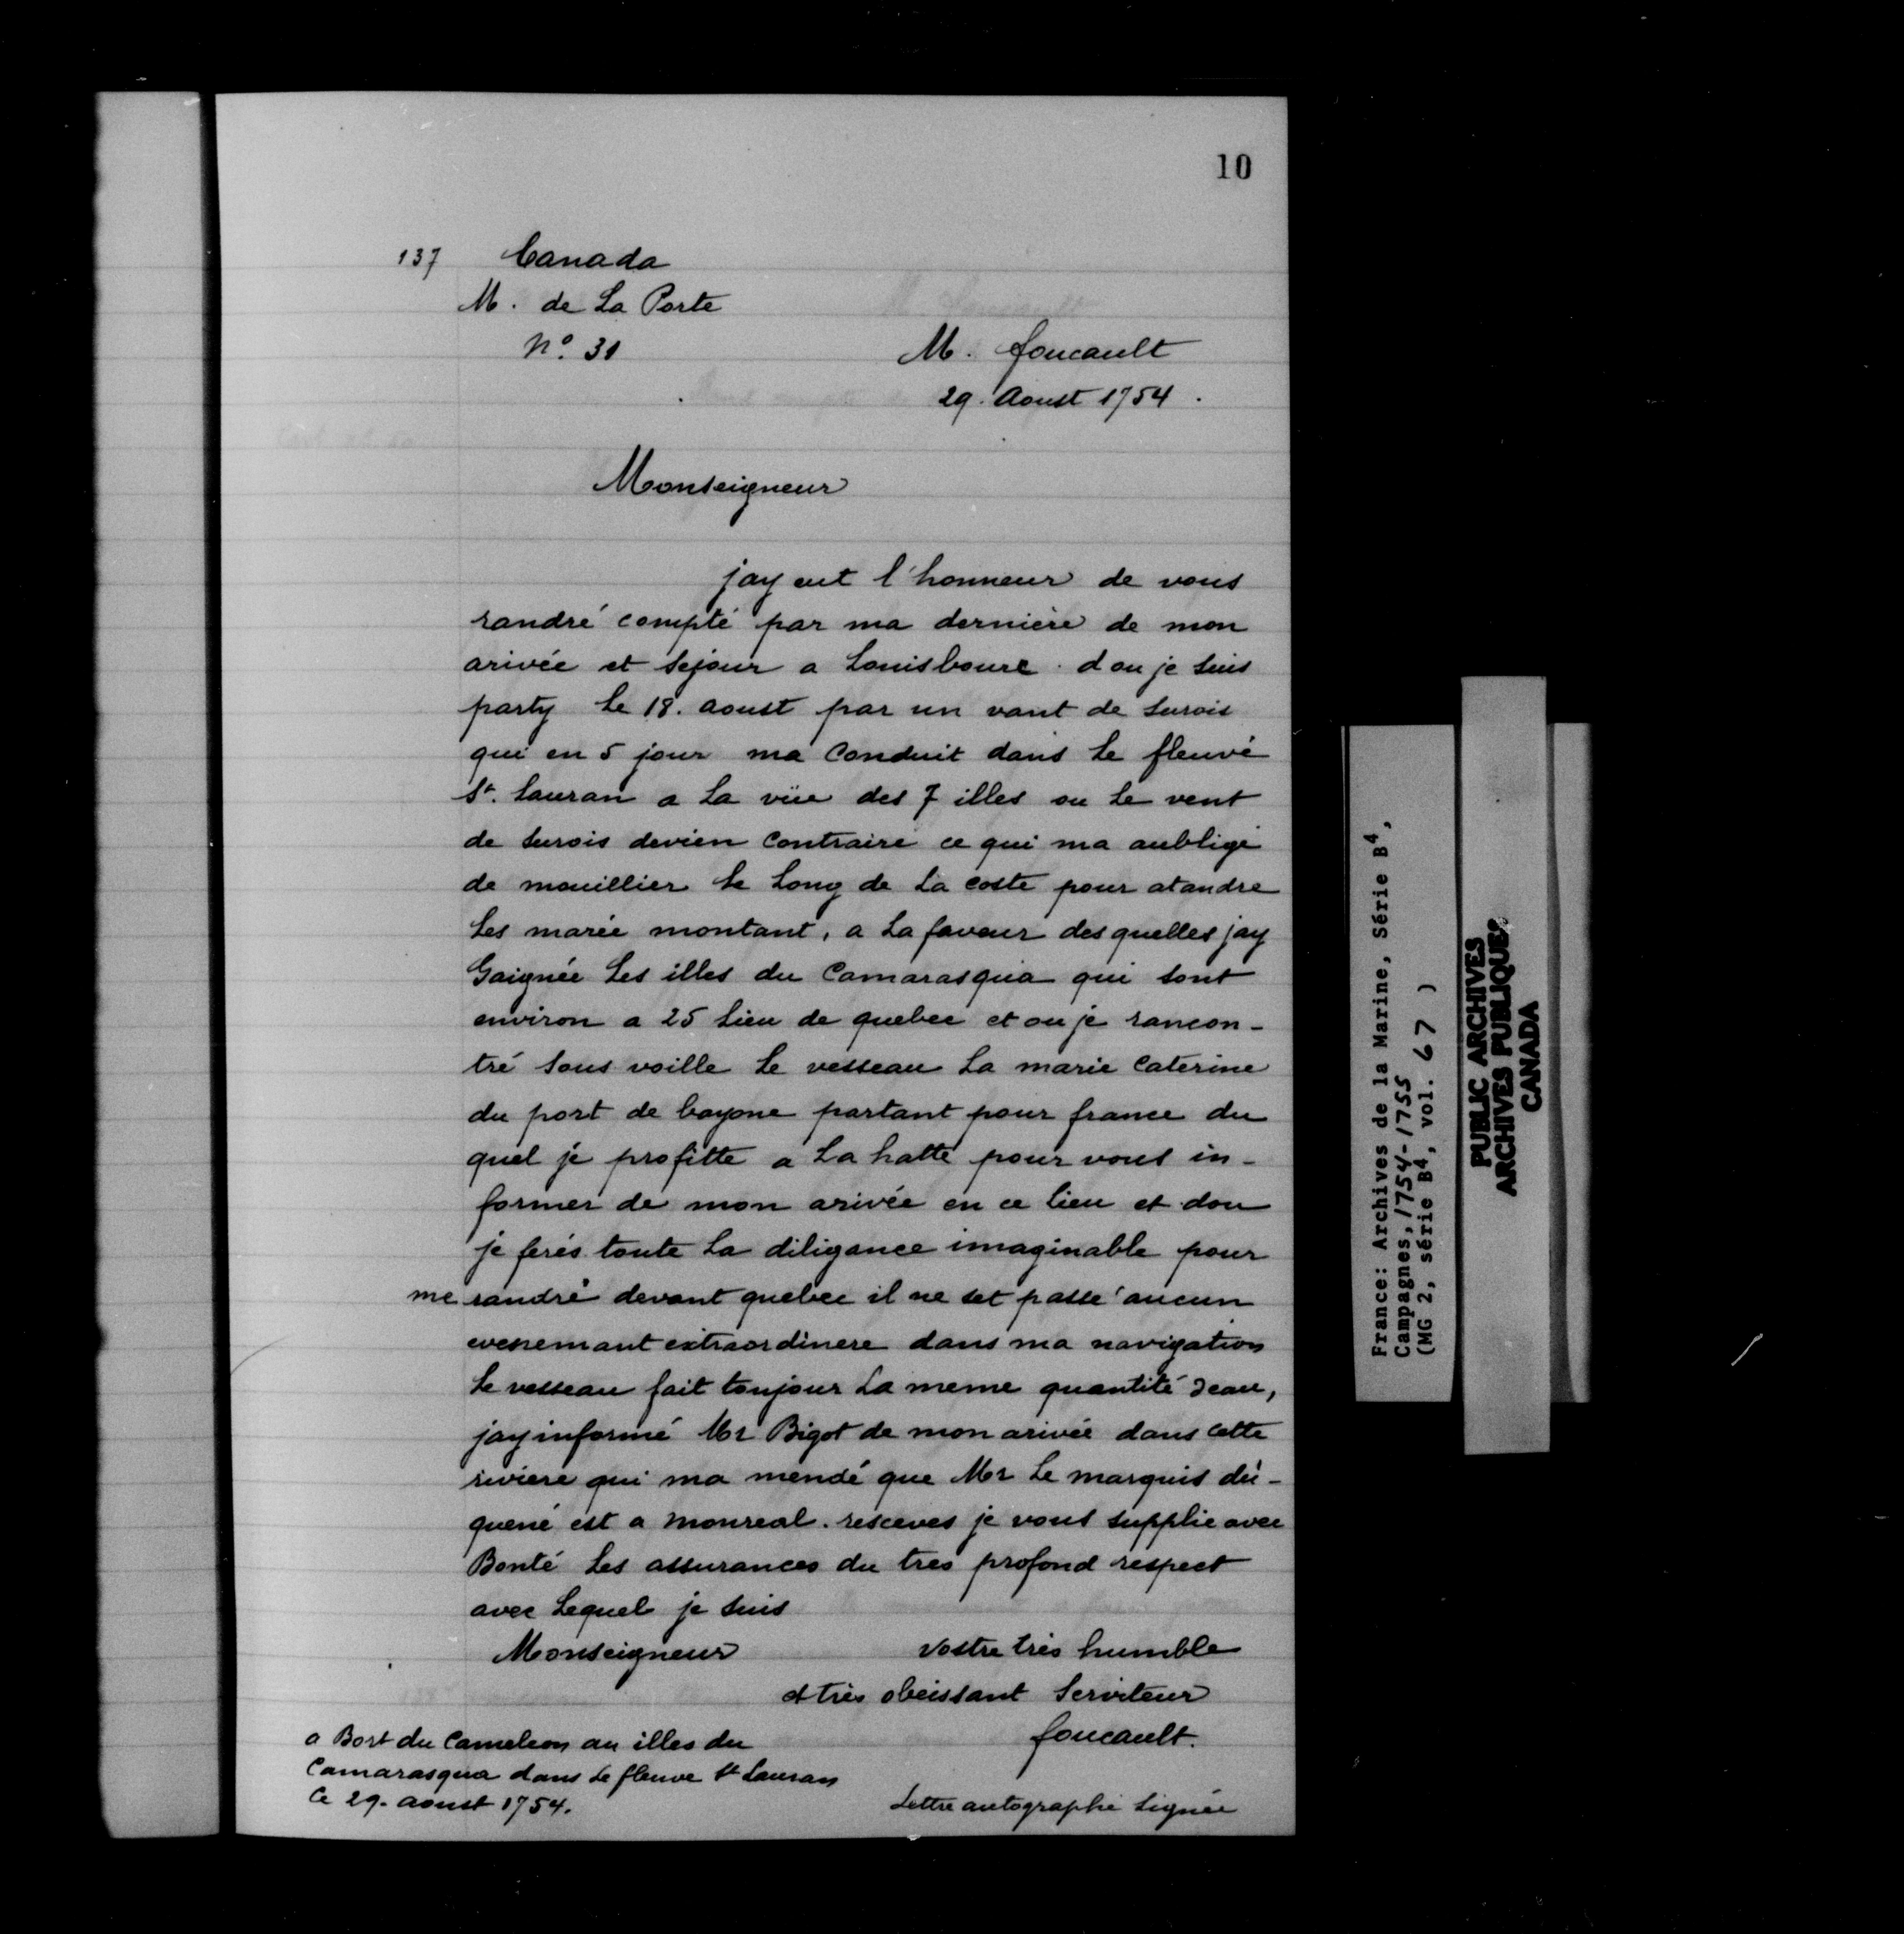 10
137 Canada
M. de La Porte
No. 31
M. foucault
29. Aoust 1754.
Monseigneur
jay eut l'honneur de vous
randré compté par ma dernière de mon
arivée et sejour a Louisbourc. dou je suis
party le 18. aoust par un vant de surois
qui en 5 jour ma conduit dans le fleuvé
St. Lauran a la vüe des 7 illes ou le vent
de surois devien contraire ce qui ma aubligé
de mouillier le long de la coste pour atandre
les marée montant, a la faveur desquelles jay
Gaignée les illes du Camarasqua qui sont
environ a 25 lieu de quebec et ou je rancon-
tré sous voille le vesseau la marie Caterine
du port de bayone partant pour france du
quel je profitte a la hatte pour vous in-
former de mon arivée en ce lieu et dou
je ferés toute la diligance imaginable pour
me randré devant quebec il ne set passé aucun
evenemant extraordinere dans ma navigation
le vesseau fait toujour la meme quantité deau,
jay informé Mr Bigot de mon arivée dans cette
riviere qui ma mendé que Mr le marquis du-
quené est a Monreal. resceves je vous supplie avec
Bonté les assurances du tres profond respect
avec lequel je suis
Monseigneur
Vostre très humble
et très obeissant Serviteur
foucault.
a Bort du Cameleon au illes du
Camarasqua dans le fleuve St Lauran
Ce 29. aoust 1754.
Lettre autographe signée
France: Archives de la Marine, Série B4,
Campagnes, 1754-1755
(MG 2, série B4, vol. 67 )
PUBLIC ARCHIVES
ARCHIVES PUBLIQUES
CANADA